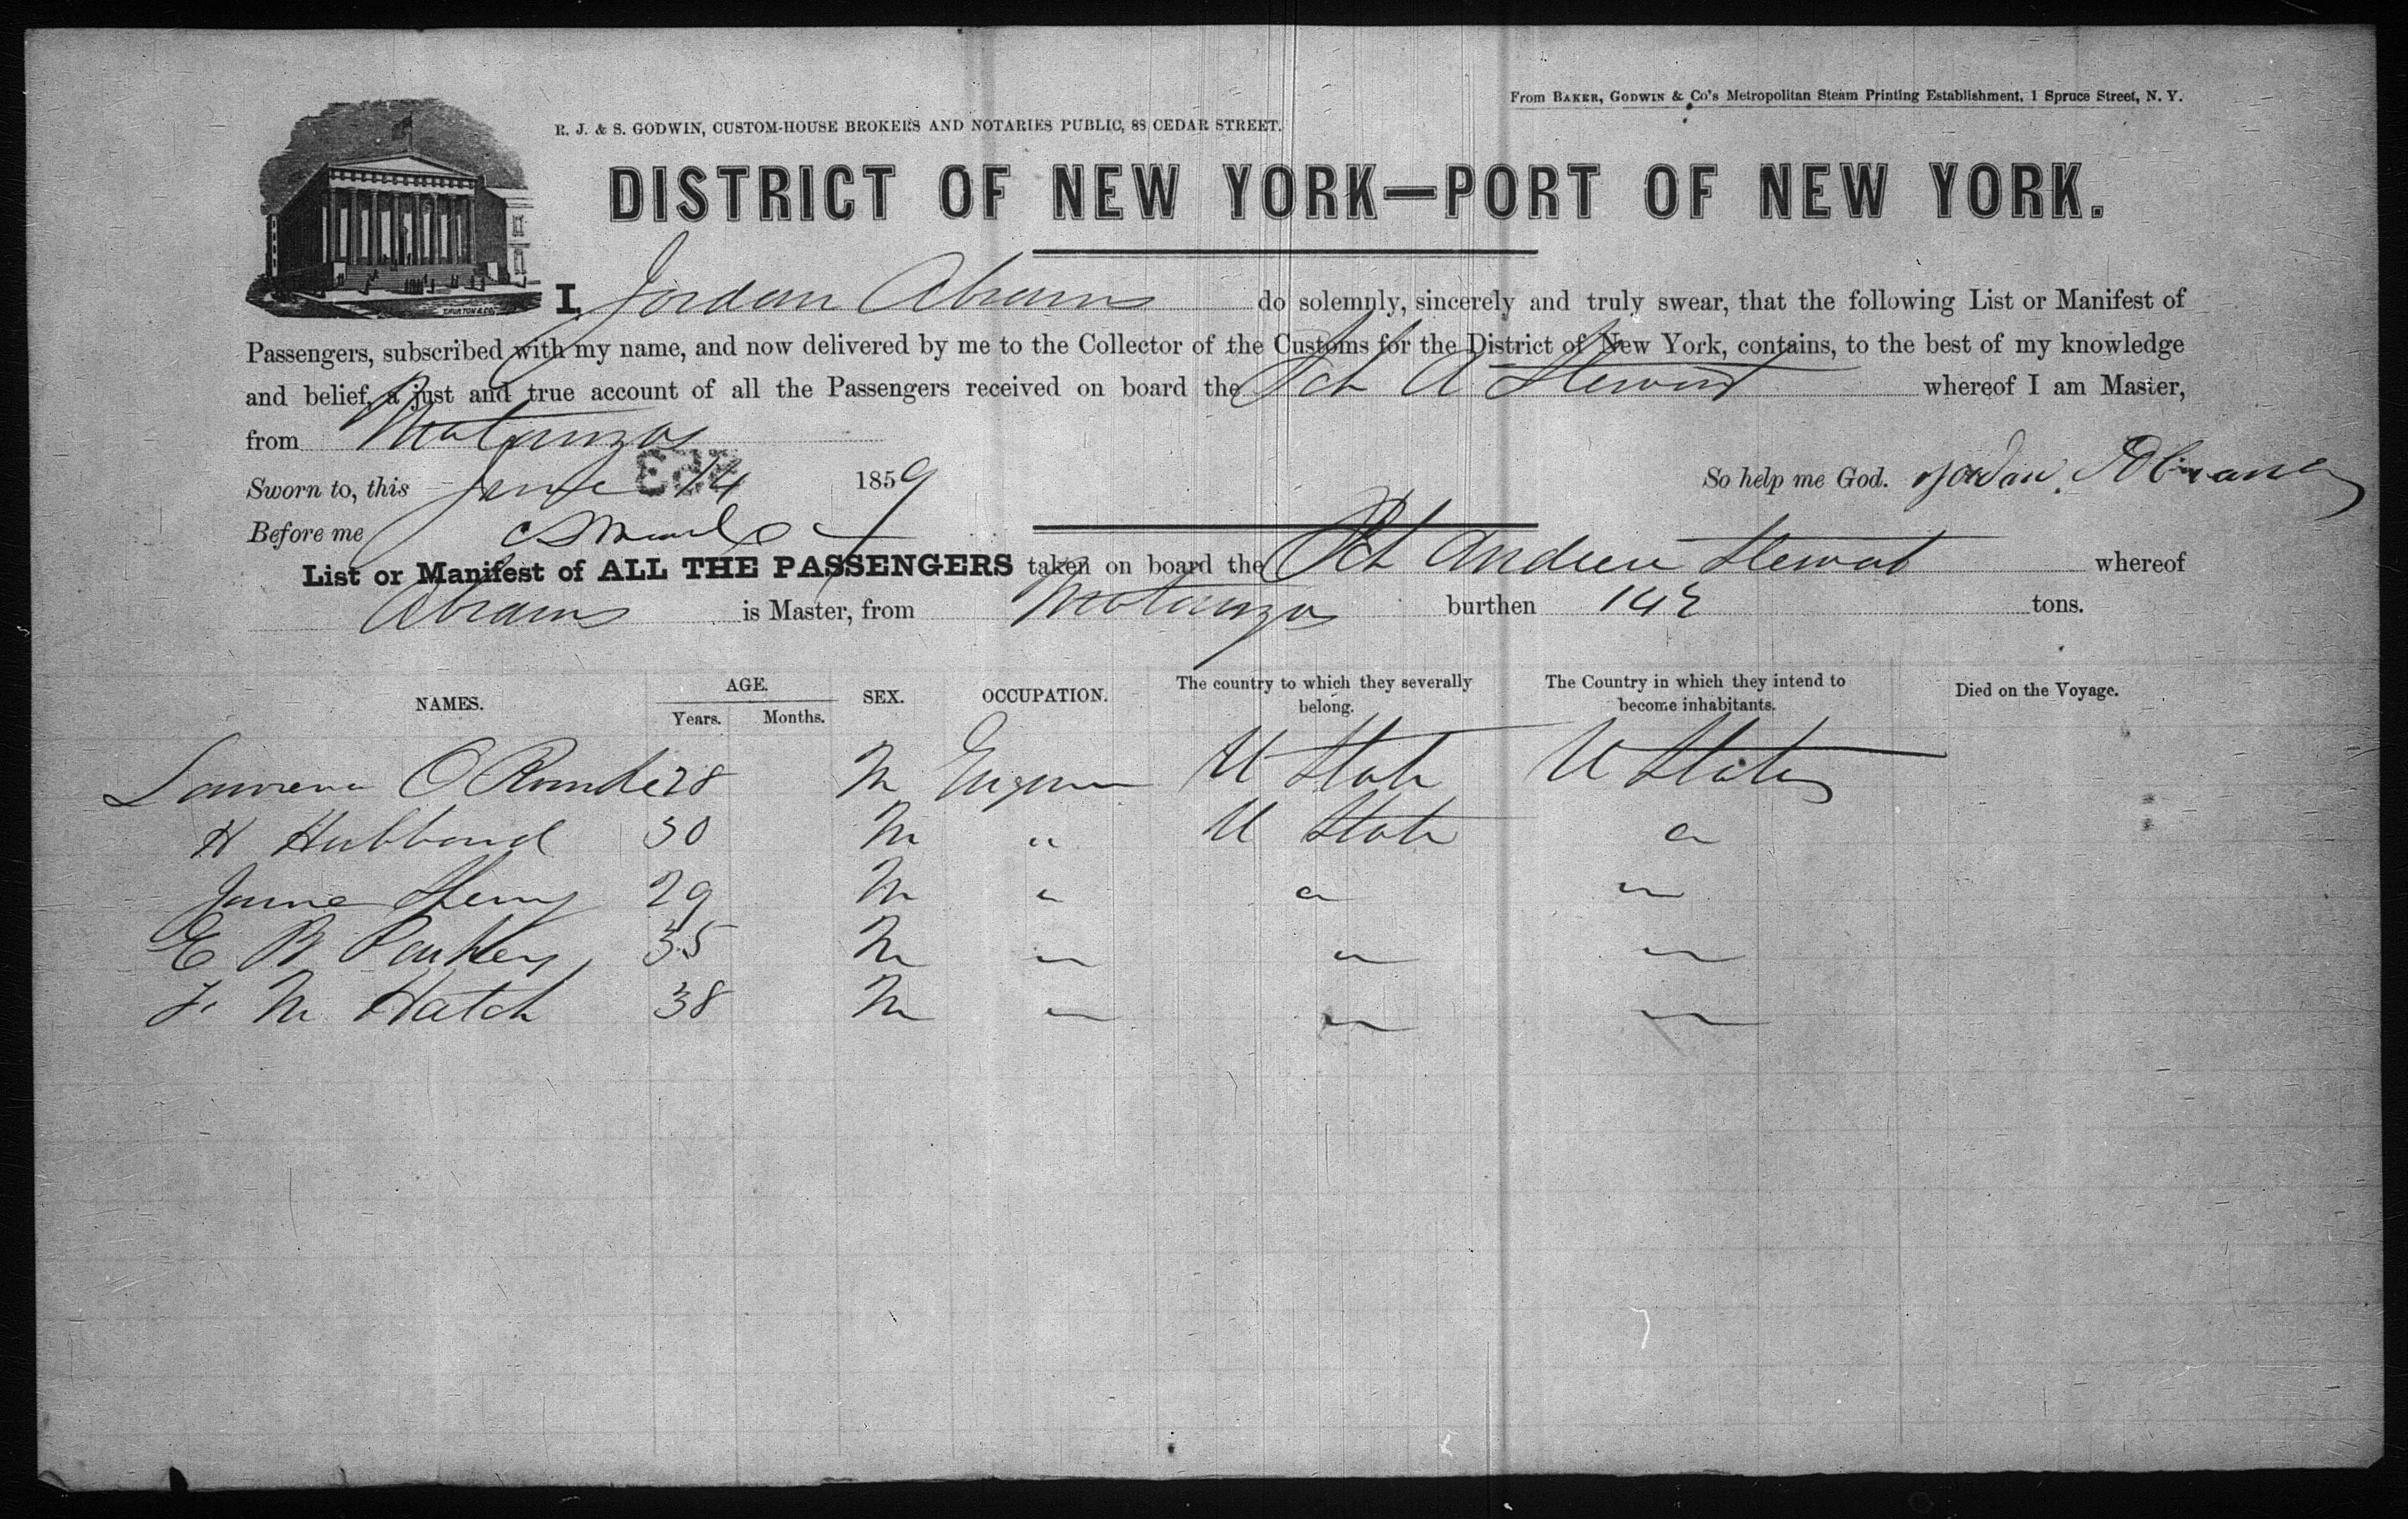 From BAKER, GODWIN & Co's Metropolitan Steam Printing Establishment, 1 Spruce Street, N. Y.
R. J. & S. GODWIN, CUSTOM-HOUSE BROKERS AND NOTARIES PUBLIC, 88 CEDAR STREET.
DISTRICT OF NEW YORK—PORT OF NEW YORK.
I, Jordan Abrams do solemnly, sincerely and truly swear, that the following List or Manifest of
Passengers, subscribed with my name, and now delivered by me to the Collector of the Customs for the District of New York, contains, to the best of my knowledge
and belief, a just and true account of all the Passengers received on board the Sch A Stewart whereof I am Master,
from Matanzas
Sworn to, this June 14 1859 So help me God. Jordan Abrams
Before me
List or Manifest of ALL THE PASSENGERS taken on board the Sch Andrew Stewart whereof
Abrams is Master, from Matanzas burthen tons.
NAMES. AGE. SEX. OCCUPATION. The country to which they severally belong. The Country in which they intend to become inhabitants. Died on the Voyage.
Years. Months.
28 M U State U States
H Hubbard 30 M " U State "
Henry 29 M " " "
E B 35 M " " "
F. M Hatch 38 M " " "